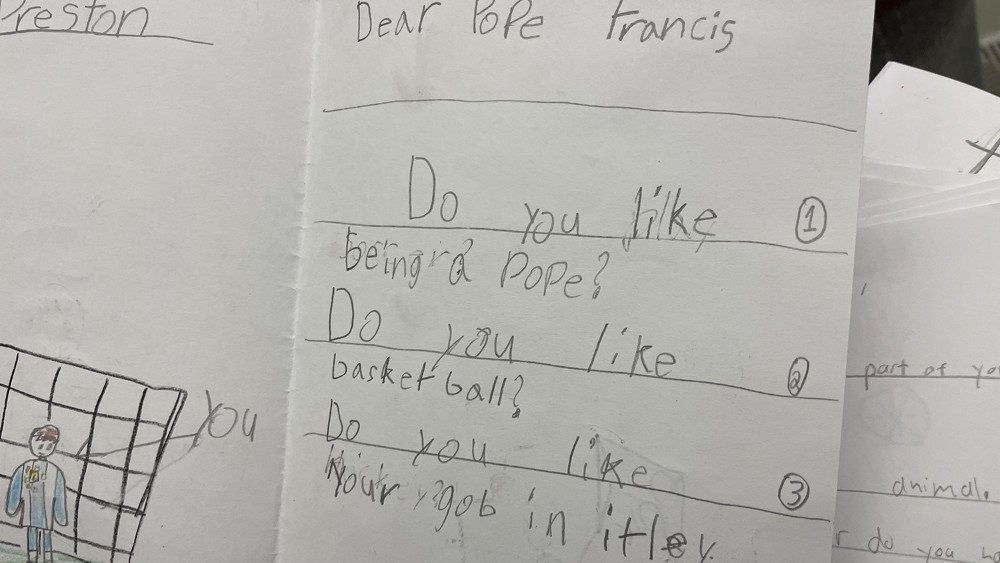 Preston
Dear Pope Francis
Do you like ①
being a Pope?
Do you like ②
basketball?
Do you like ③
your gob in itley
You
part of yo
animal.
r do you